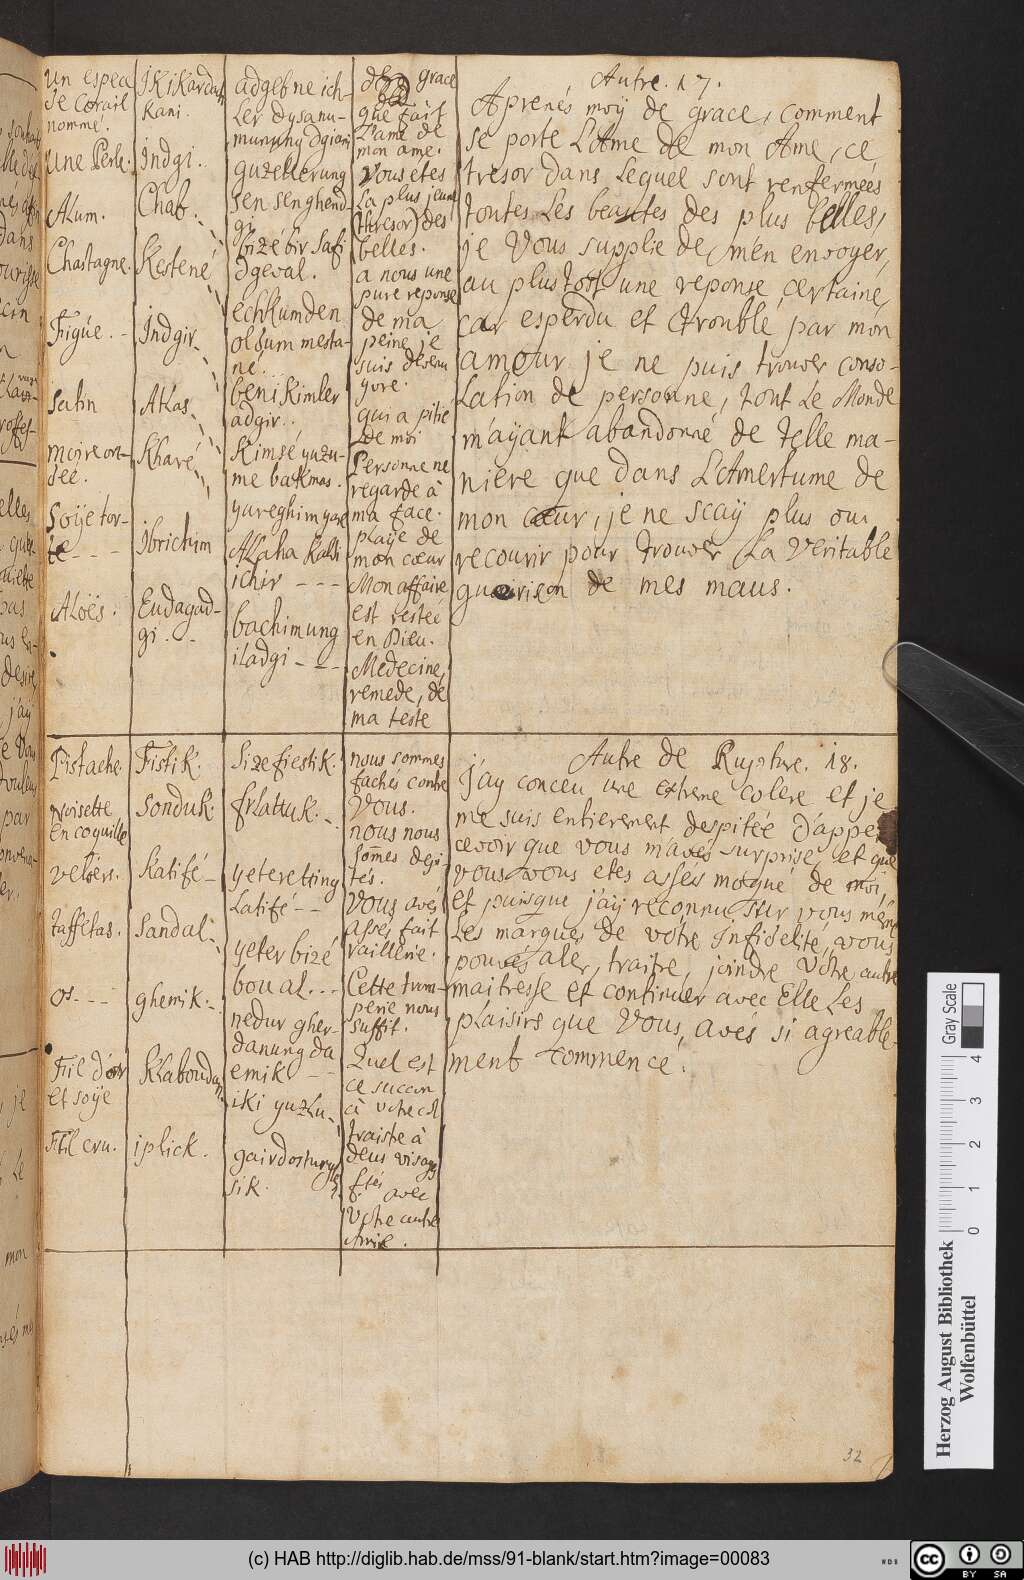 un espece
de Corail
nommé.
une Perle.
Alum.
Chastagne.
Figue.
Satin
moire on-
dée.
Soÿe tor-
te
Aloës.
Ikikardah
kani.
Indgi.
Chab.
Kestené
Indgir
Atlas
Kharé
Ibrichim
Eudagad-
gi.
adgeb ne ich-
Ler dysanu-
munung dgiani
guzellerung
sen senghend-
gi
bizé bir Safi
dgeval.
echkumden
oldum mesta-
né.
beni kimler
adgir.
Kimsé yuzu-
me bakmas.
yureghim yare
Allaha kaldi
ichir
bachimung
iladgi
de grace
que fait
l'ame de
mon ame.
Vous etes
La plus jeune
(thresor) des
belles.
a nous une
pure reponse
de ma
peine je
suis devenu
yvre.
qui a pitié
de moi
Personne ne
regarde à
ma face.
playe de
mon cœur
Mon affaire
est restée
en Dieu.
Medecine,
remede, de
ma teste
Autre. 17.
Aprenés moÿ de grace, comment
se porte L'Ame de mon Ame, ce
tresor dans Lequel sont renfermées
toutes Les beautes des plus belles,
je Vous supplie de m'en envoyer,
au plustost une reponse certaine,
Car esperdu et troublé par mon
amour je ne puis trouver conso-
Lation de personne, tout Le Monde
m'aÿant abandonné de telle ma-
niere que dans L'Amertume de
mon cœur, je ne sçaÿ plus ou
recourir pour trouver La veritable
guairison de mes maus.
Pistache.
Noisette
en coquille
velours.
taffetas.
os.
Fil d'or
et soÿe
Fil cru.
Fistik.
Sonduk
Katifé
Sandal
ghemik.
Klaboudan
iplick.
Size fiestik.
frlattuk.
yeteretting
Latifé
yeter bizé
bou al.
nedur gher-
danung da
emik
iki yuzlu
gairdostung
sik.
nous sommes
fachés contre
Vous.
nous nous
som̃es depi-
tés.
Vous avés
assés fait
raillerie.
Cette trom-
perie nous
suffit.
Quel est
ce succon
à votre col
traistre à
deus visages
avec
Votre autre
Amie.
Autre de Rupture. 18.
j'ay conceu une extreme colere et je
me suis entierement despitée d'apper-
cevoir que vous m'avés surprise, et que
vous vous etes assés moqué de moi,
et puisque j'aÿ reconnu sur vous même
Les marques de votre Infidelité, vous
pouvés aler, traitre, joindre Votre autre
maitresse et continuer avec Elle Les
plaisirs que Vous, avés si agreable-
ment commencé.
32
Herzog August Bibliothek
Wolfenbüttel
0 1 2 3 4
Gray Scale
(c) HAB http://diglib.hab.de/mss/91-blank/start.htm?image=00083
WDB
cc BY SA